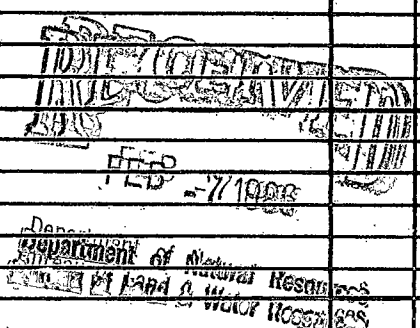 RECEIVED
FEB -7 1986
Department of Natural Resources
of Land & Water Resources